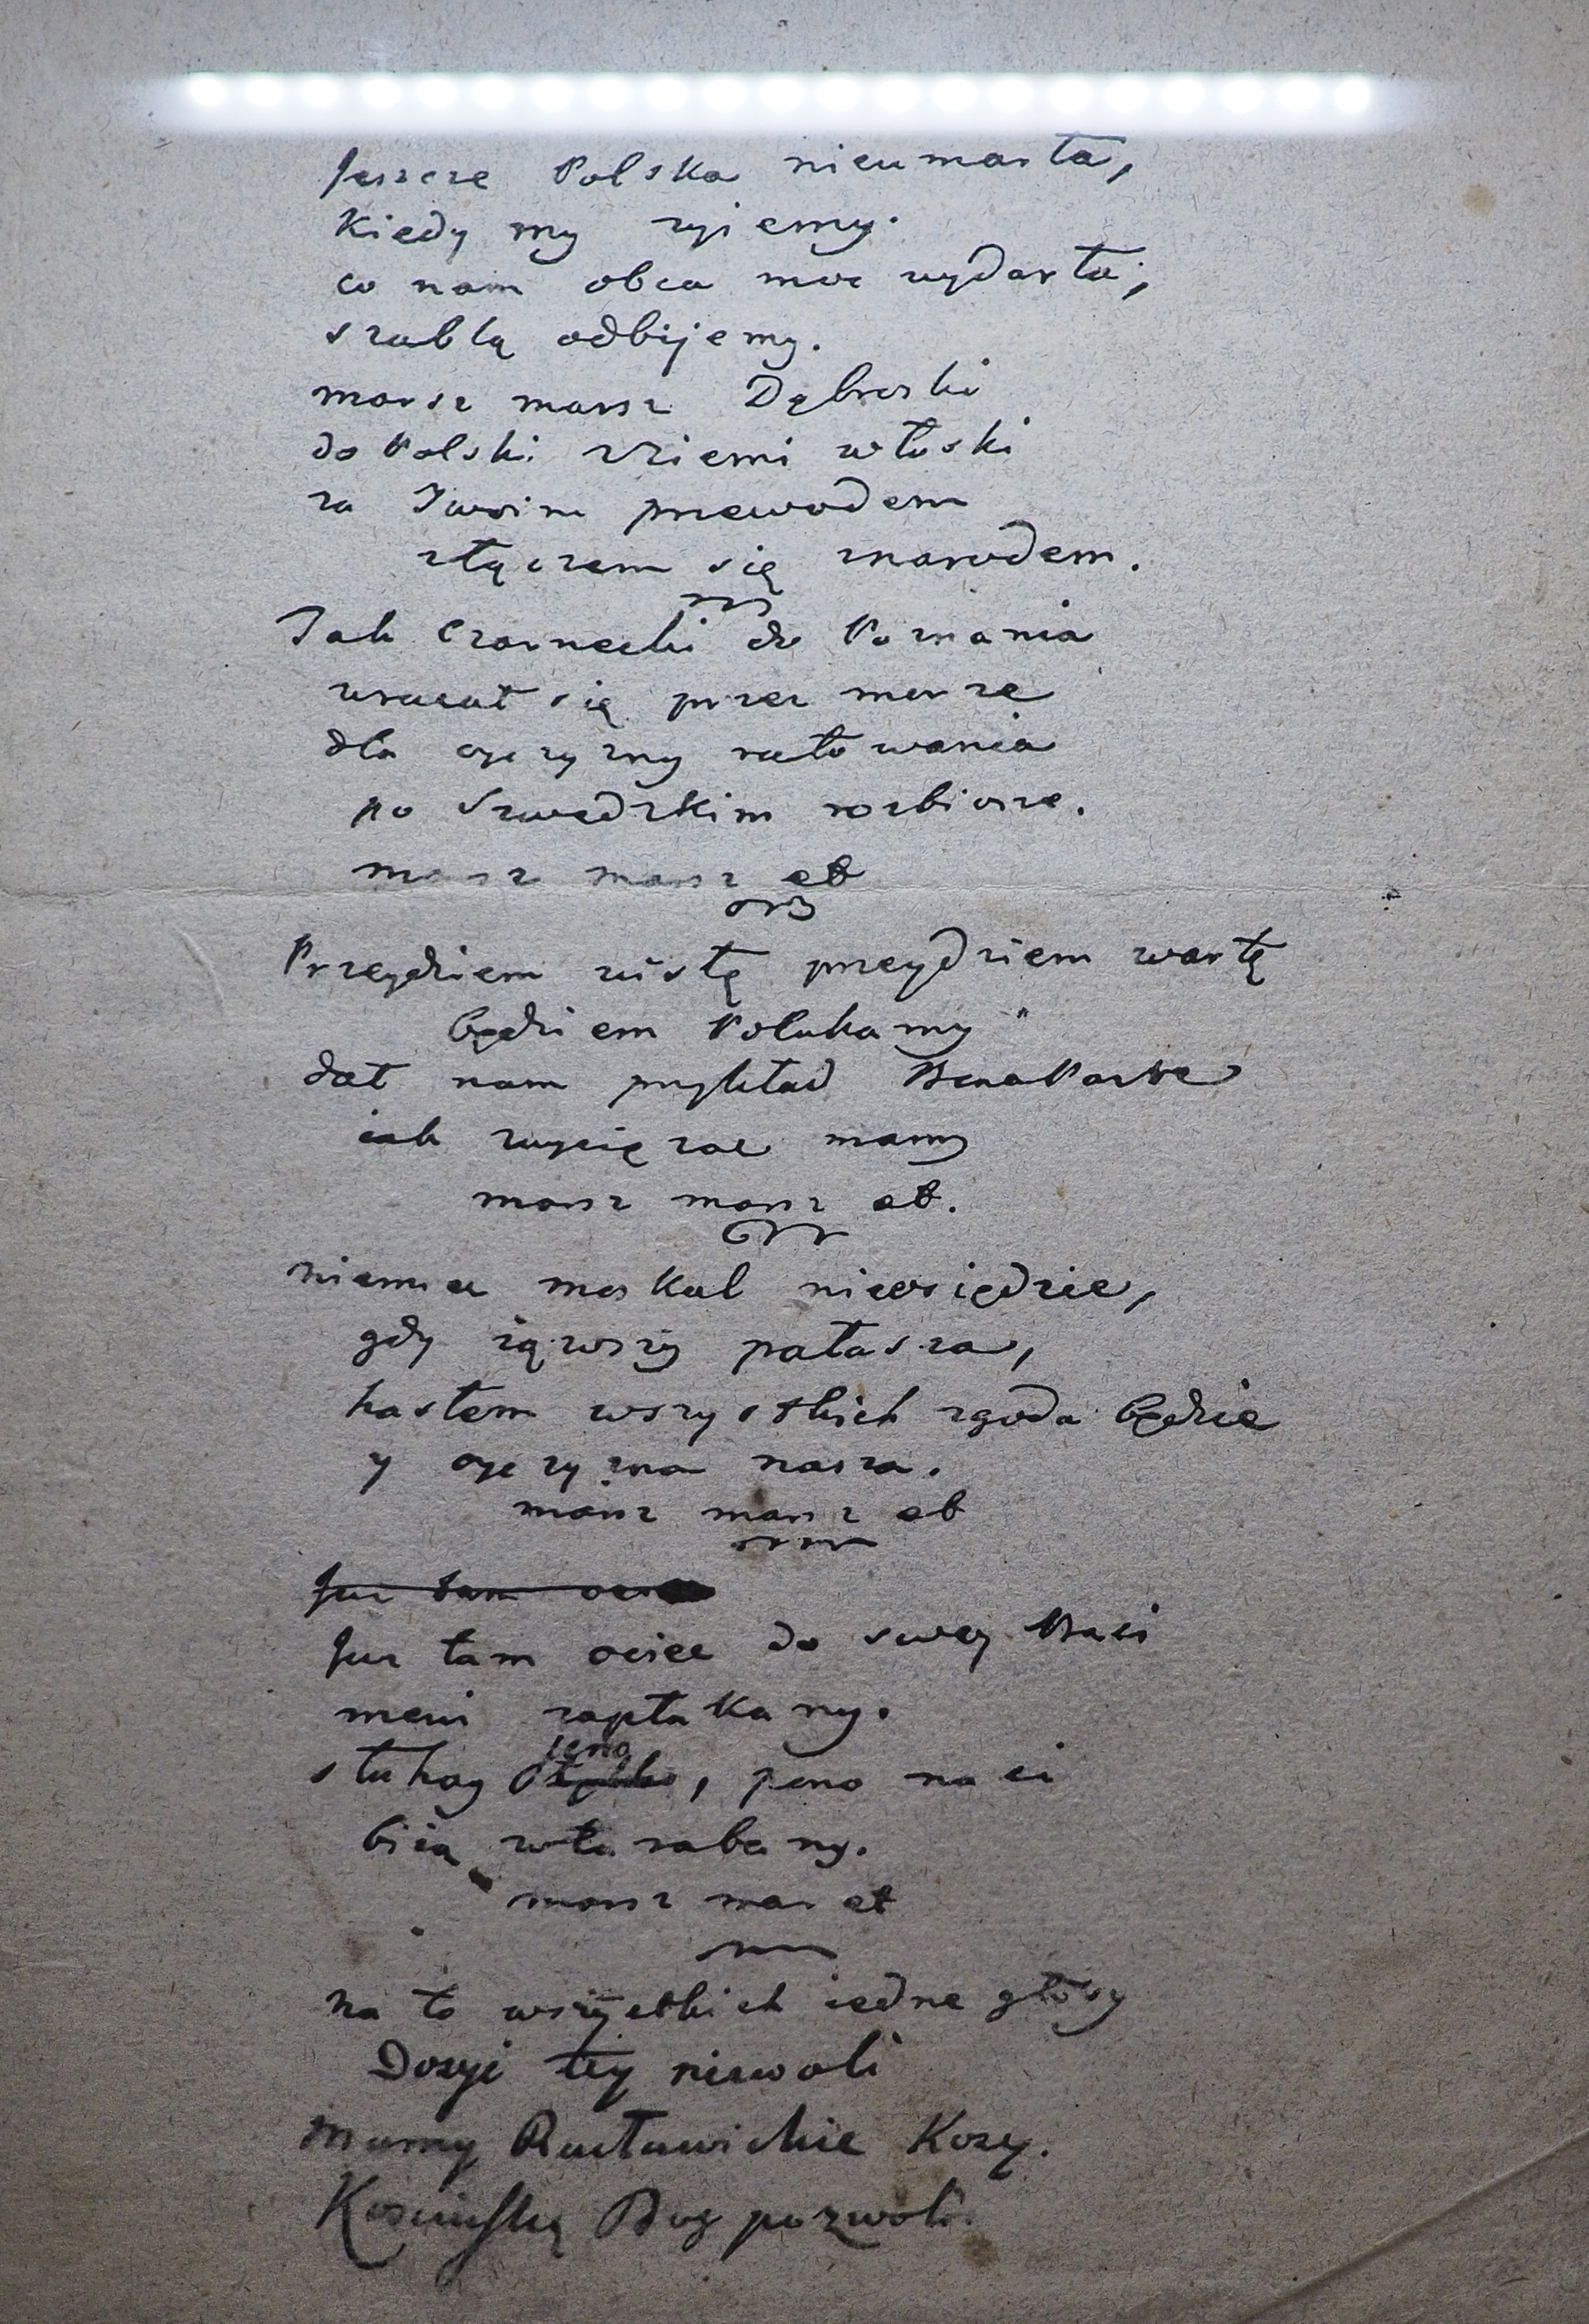 Jeszcze Polska nieumarła,
kiedy my zyiemy.
co nam obca moc wydarła,
szablą odbijemy.
marsz marsz Dąbroski
do Polski zziemi włoski
za Twoim przewodem
złączem się znarodem.
Jak Czarnecki do Poznania
wracał się przez morze
dla oyczyzny ratowania
po Szwedzkim rozbiorze.
marsz marsz et
Przeydziem wisłę przeydziem wartę
będziem Polakamy
dał nam przykład BonaParte
iak zwycięzać mamy
marsz marsz et.
niemiec moskal nieosiędzie,
gdy iąwszy pałasza,
hasłem wszystkich zgoda będzie
y oyczyzna nasza.
marsz marsz et
Juz tam ociec
Juz tam ociec do swey Basi
mówi zapłakany.
słuhay ieno, pono nasi
biią wtarabany.
marsz mar et
na to wszystkich iedne głosy
Dosyć tey niewoli
mamy Racławickie Kosy.
Kosciuszkę Bog pozwoli.